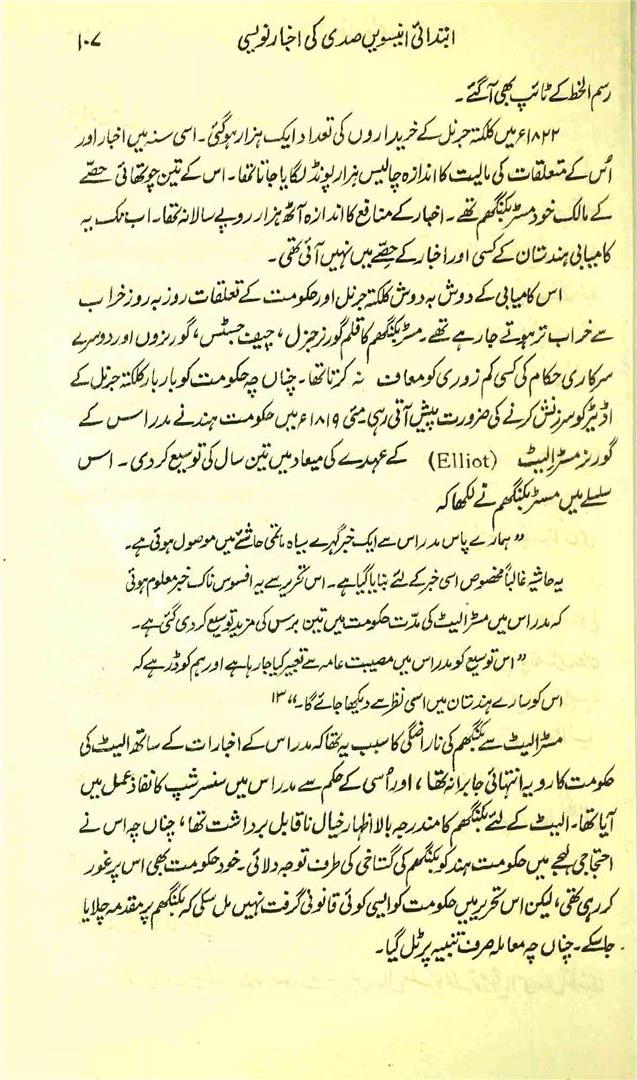 ابتدائی انیسویں صدی کی اخبار نویسی ۱۰۷
رسم الخط کے ٹائپ بھی آ گئے۔
۱۸۲۲ء میں کلکتہ جرنل کے خریداروں کی تعداد ایک ہزار ہو گئی۔ اسی سنہ میں اخبار اور
اُس کے متعلقات کی مالیت کا اندازہ چالیس ہزار پونڈ لگایا جاتا تھا۔ اس کے تین چوتھائی حصّے
کے مالک خود مسٹر بکنگھم تھے۔ اخبار کے منافع کا اندازہ آٹھ ہزار روپے سالانہ تھا۔ اب تک یہ
کامیابی ہندستان کے کسی اور اخبار کے حصّے میں نہیں آئی تھی۔
اس کامیابی کے دوش بہ دوش کلکتہ جرنل اور حکومت کے تعلقات روز بہ روز خراب
سے خراب تر ہوتے جا رہے تھے۔ مسٹر بکنگھم کا قلم گورنر جنرل، چیف جسٹس، گورنروں اور دوسرے
سرکاری حکام کی کسی کم زوری کو معاف نہ کرتا تھا۔ چناں چہ حکومت کو بار بار کلکتہ جرنل کے
اڈیٹر کو سرزنش کرنے کی ضرورت پیش آتی رہی۔ مئی ۱۸۱۹ء میں حکومت ہند نے مدراس کے
گورنر مسٹر الیٹ (Elliot) کے عہدے کی میعاد میں تین سال کی توسیع کر دی۔ اس
سلسلے میں مسٹر بکنگھم نے لکھا کہ
"ہمارے پاس مدراس سے ایک خبر گہرے سیاہ ماتمی حاشئے میں موصول ہوئی ہے۔
یہ حاشیہ غالباً مخصوص اسی خبر کے لئے بنایا گیا ہے۔ اس تحریر سے یہ افسوس ناک خبر معلوم ہوئی
کہ مدراس میں مسٹر الیٹ کی مدّت حکومت میں تین برس کی مزید توسیع کر دی گئی ہے۔
"اس توسیع کو مدراس میں مصیبت عامہ سے تعبیر کیا جا رہا ہے اور ہم کو ڈر ہے کہ
اس کو سارے ہندستان میں اسی نظر سے دیکھا جائے گا۔" ۱۳
مسٹر الیٹ سے بکنگھم کی ناراضگی کا سبب یہ تھا کہ مدراس کے اخبارات کے ساتھ الیٹ کی
حکومت کا رویہ انتہائی جابرانہ تھا، اور اُسی کے حکم سے مدراس میں سنسر شپ کا نفاذ عمل میں
آیا تھا۔ الیٹ کے لئے بکنگھم کا مندرجہ بالا اظہار خیال ناقابل برداشت تھا، چناں چہ اس نے
احتجاجی لہجے میں حکومت ہند کو بکنگھم کی گستاخی کی طرف توجہ دلائی۔ خود حکومت بھی اس پر غور
کر رہی تھی، لیکن اس تحریر میں حکومت کو ایسی کوئی قانونی گرفت نہیں مل سکی کہ بکنگھم پر مقدمہ چلایا
جا سکے۔ چناں چہ معاملہ صرف تنبیہ پر ٹل گیا۔